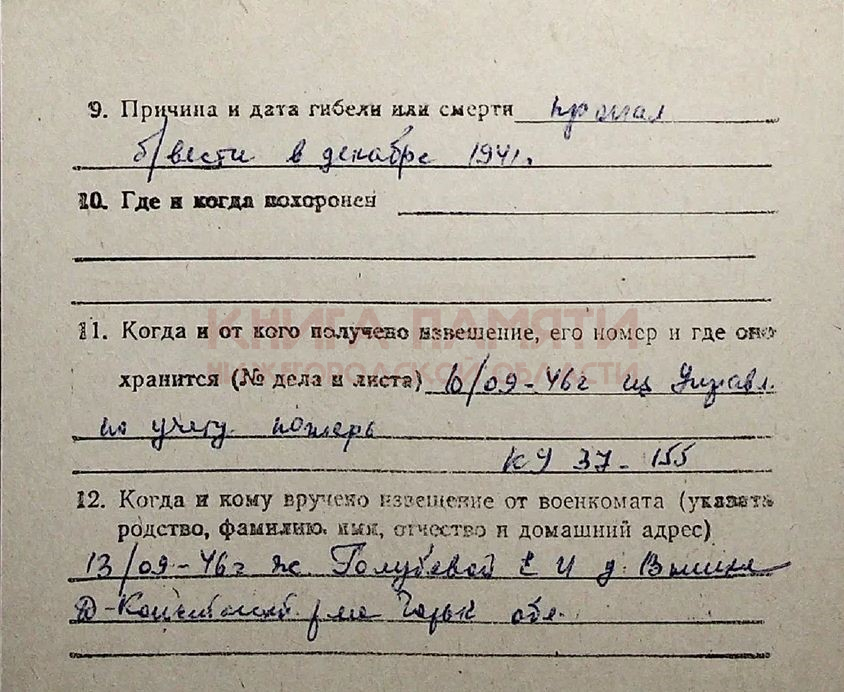 9. Причина и дата гибели или смерти пропал
б/вести в декабре 1941.
10. Где и когда похоронен
КНИГА ПАМЯТИ
НИЖЕГОРОДСКОЙ ОБЛАСТИ
11. Когда и от кого получено извещение, его номер и где оно
хранится (№ дела и листа) 10/09-46г из Управл.
по учету потерь
КУ 37-155
12. Когда и кому вручено извещение от военкомата (указать
родство, фамилию, имя, отчество и домашний адрес)
13/09-46г ж. Голубевой Е И д.
Д-Константин. р-на Горьк обл.